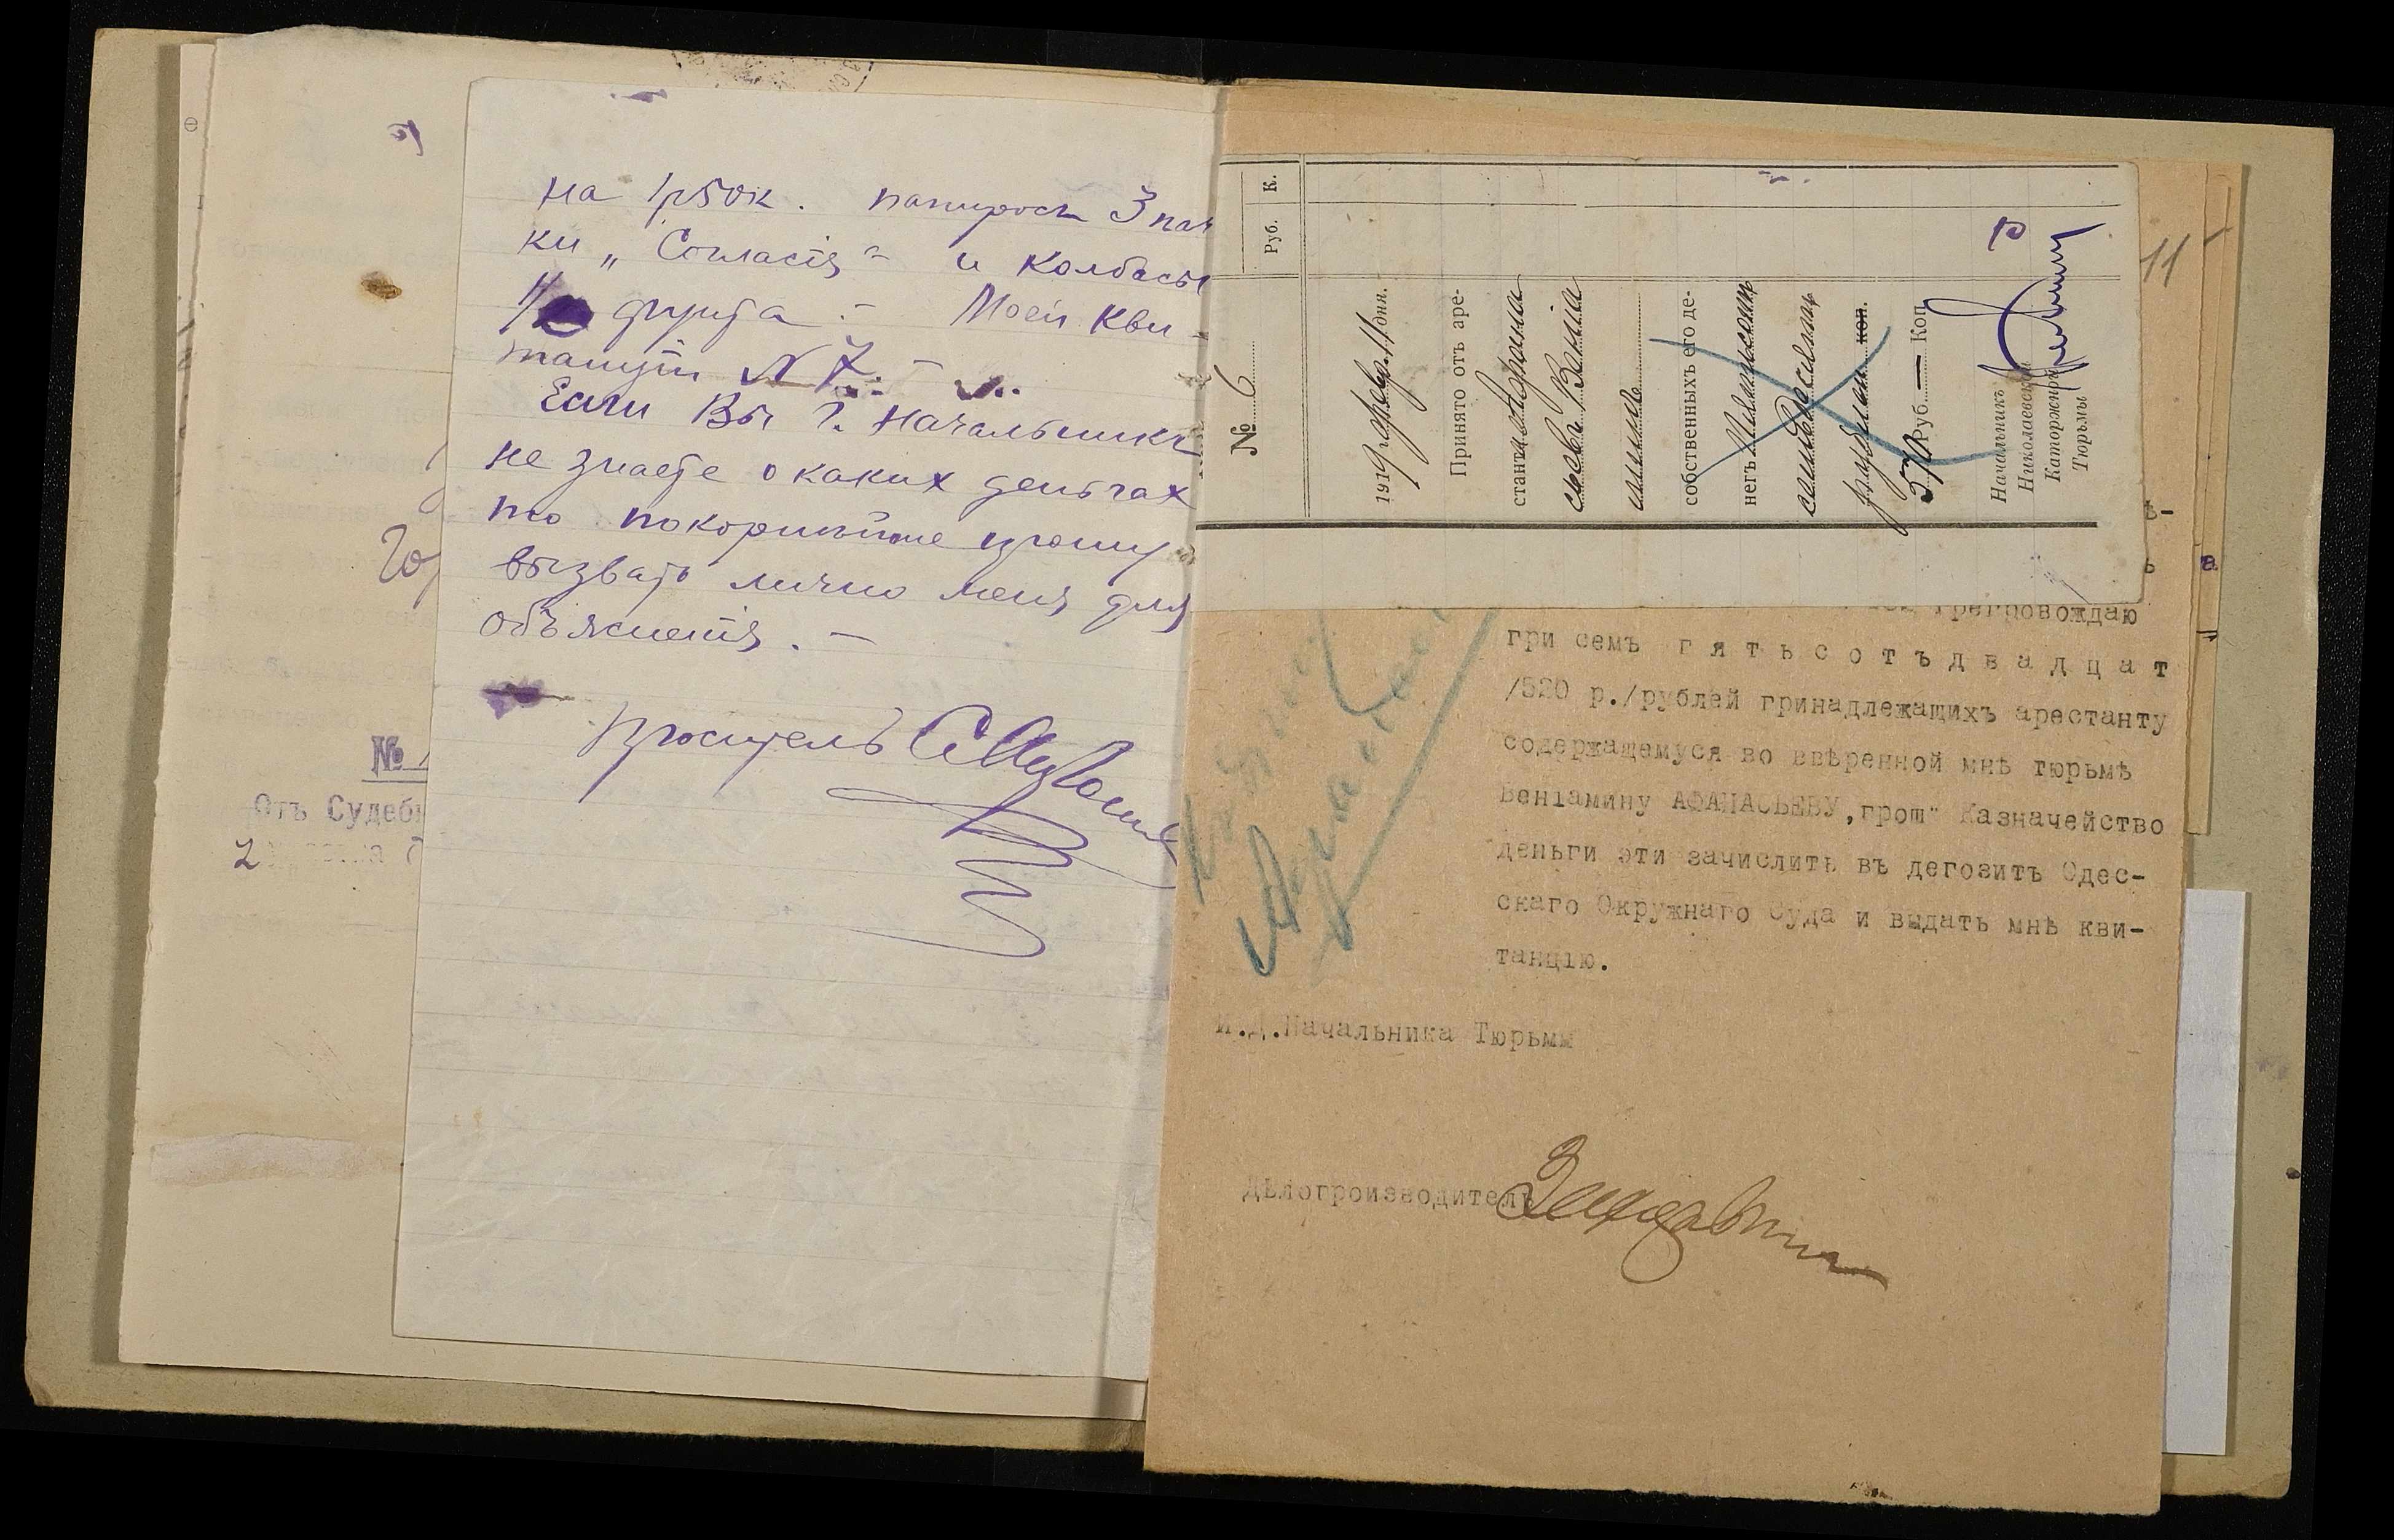 на 1р50к. папиросъ 3 пач
ки „Согласія“ и колбасы
фунта. – Моей кви-
танціи № 7. –
Если Вы Г. Начальникъ
не знаете о каких деньгах
то покорнѣйше прошу
вызвать лично меня для
объясненія. –
проситель
№
Отъ Судеб
Руб. К.
№ 6
1919 г. февр. 11 дня.
Принято отъ аре-
станта Афана
сьева Венiа
мина
собственныхъ его де-
негъ
рублей коп.
570 Руб. — Коп.
Начальникъ
Николаевской
Каторжной
Тюрьмы
11
грепровождаю
гри семъ г я т ь с о т ъ д в а д ц а т
/520 р./рублей гринадлежащихъ арестанту
содержащемуся во ввѣренной мнѣ тюрьмѣ
Веніамину АФАНАСЬЕВУ,грош" Казначейство
деньги эти зачислить въ дегозитъ Одес-
скаго Окружнаго Суда и выдать мнѣ кви-
танцію.
И.Д.Начальника Тюрьмы
Дѣлогроизводитель